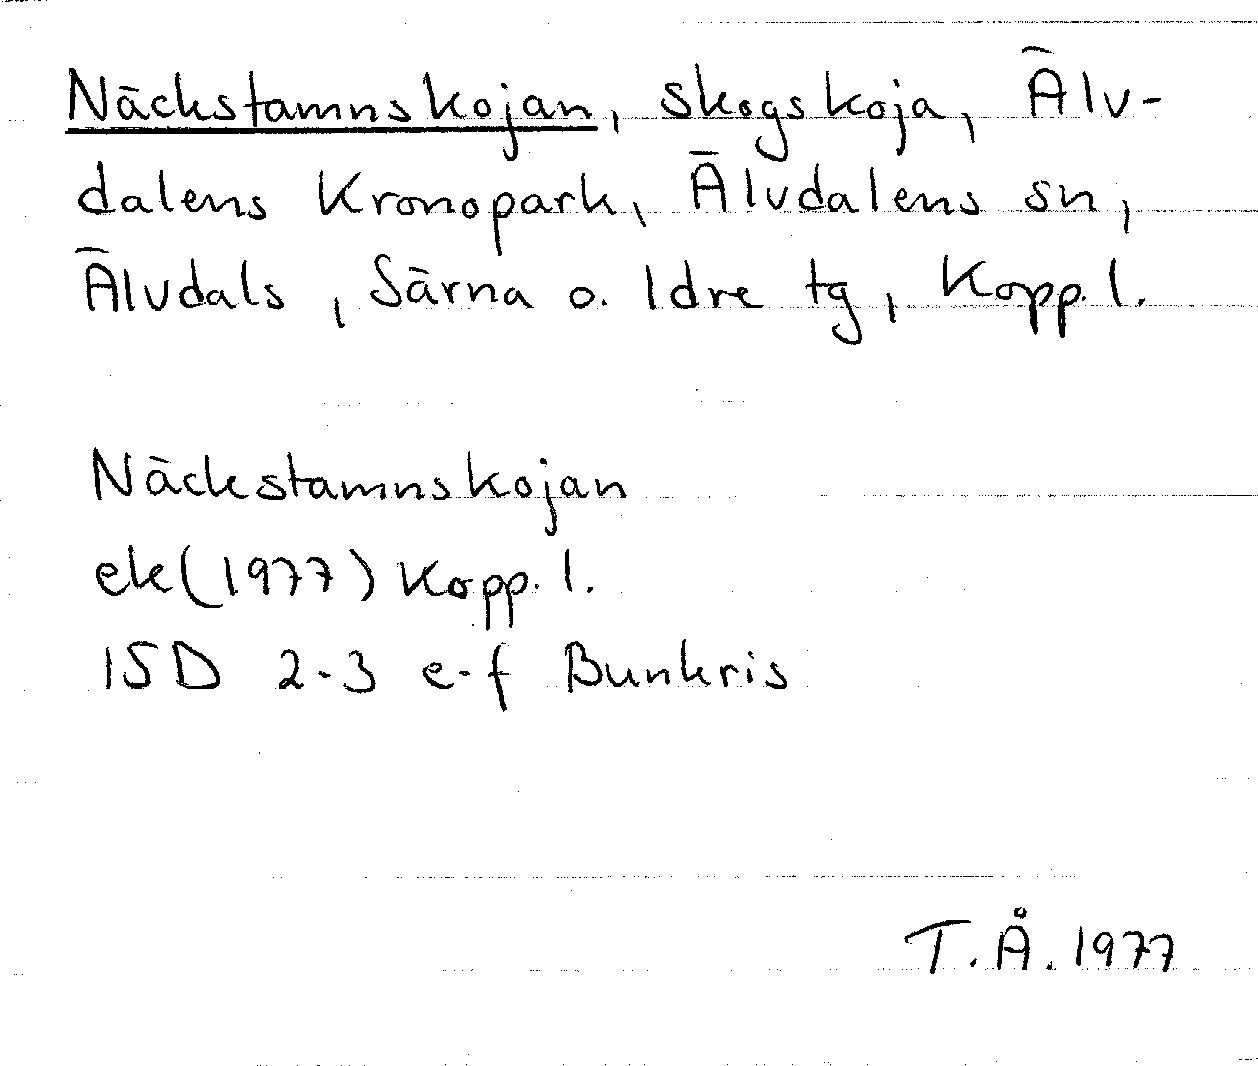 Näckstamnskojan, skogskoja, Älv-
dalens Kronopark, Älvdalens sn,
Älvdals, Särna o. Idre tg, Kopp. l.
Näckstamnskojan
ek (1977) Kopp. l.
15D 2-3 e-f Bunkris
T.Å. 1977